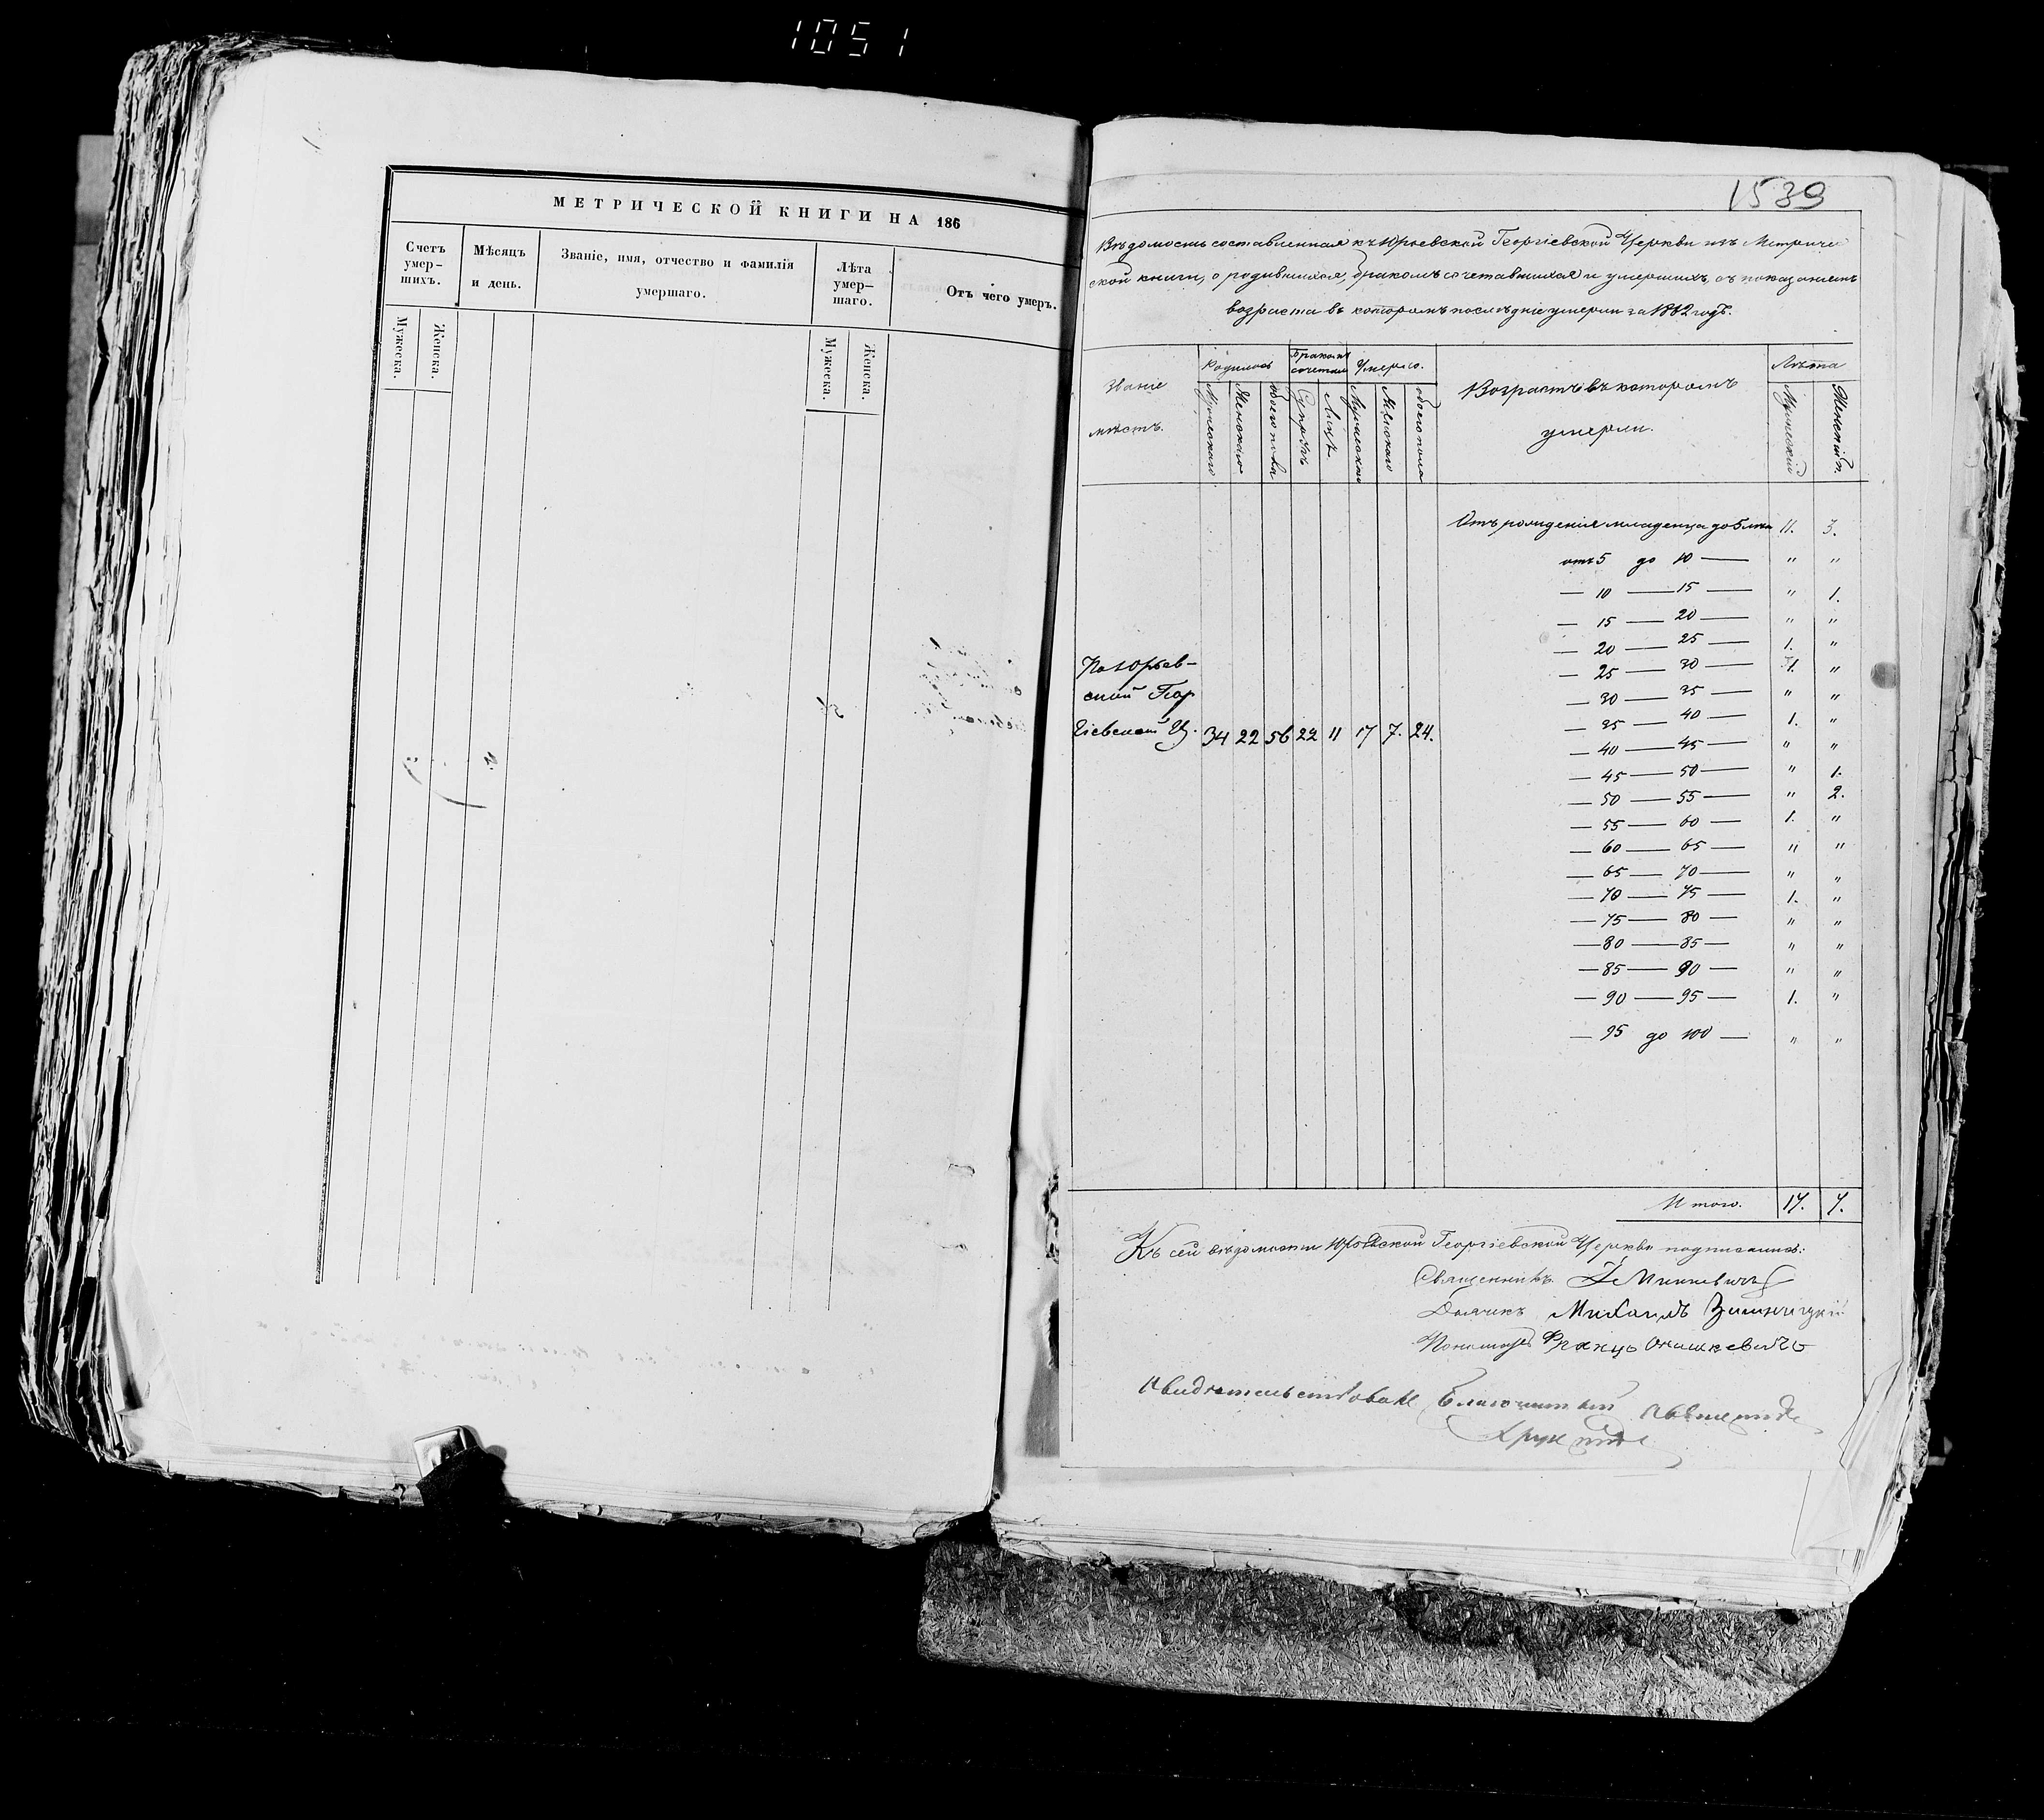 1051
МЕТРИЧЕСКОЙ КНИГИ НА 186
Счетъ умер-шихъ.
Мужеска.
Женска.
Мѣсяцъ и день.
Званіе, имя, отчество и фамилія умершаго.
Лѣта умер-шаго.
Мужеска.
Женска.
Отъ чего умеръ.
1539
Вѣдомость составленная къ Юрьевской Георгіевской Церкви изъ Метриче
ской книги, о родившихся, бракомъ сочетавшихся и умершихъ, съ показаніемъ
возраста въ которомъ послѣдніе умерли за 1862 годъ.
Званіе мѣстъ.
Родилось
Мужескаго
Женскаго
обоего пола
Бракомъ сочетал
Супруж
Лицъ
Умерло.
Мужескаго
Женскаго
обоего пола
Возрастъ въ которомъ умерли.
Лѣта
Мужескій
Женскій п.
Отъ рожденія младенца до 5 лѣтъ 11. 3.
отъ 5 до 10 — " "
— 10 — 15 — " 1.
— 15 — 20 — " "
— 20 — 25 — 1. "
— 25 — 30 — 1. "
— 30 — 35 — " "
— 35 — 40 — 1. "
— 40 — 45 — " "
— 45 — 50 — " 1.
— 50 — 55 — " 2.
— 55 — 60 — 1. "
— 60 — 65 — " "
— 65 — 70 — " "
— 70 — 75 — 1. "
— 75 — 80 — " "
— 80 — 85 — " "
— 85 — 90 — " "
— 90 — 95 — 1. "
— 95 до 100 — " "
По Юрьев-
ской Геор
гіевской Ц. 34 22 56 22 11 17 7. 24.
Итого. 17. 7.
Къ сей вѣдомости Юрьевской Георгіевской Церкви подписались:
Священникъ
Дьячекъ Михаилъ
Пономарь Францъ Онашкевичъ
Свидѣтельствовалъ Благочинный Священникъ